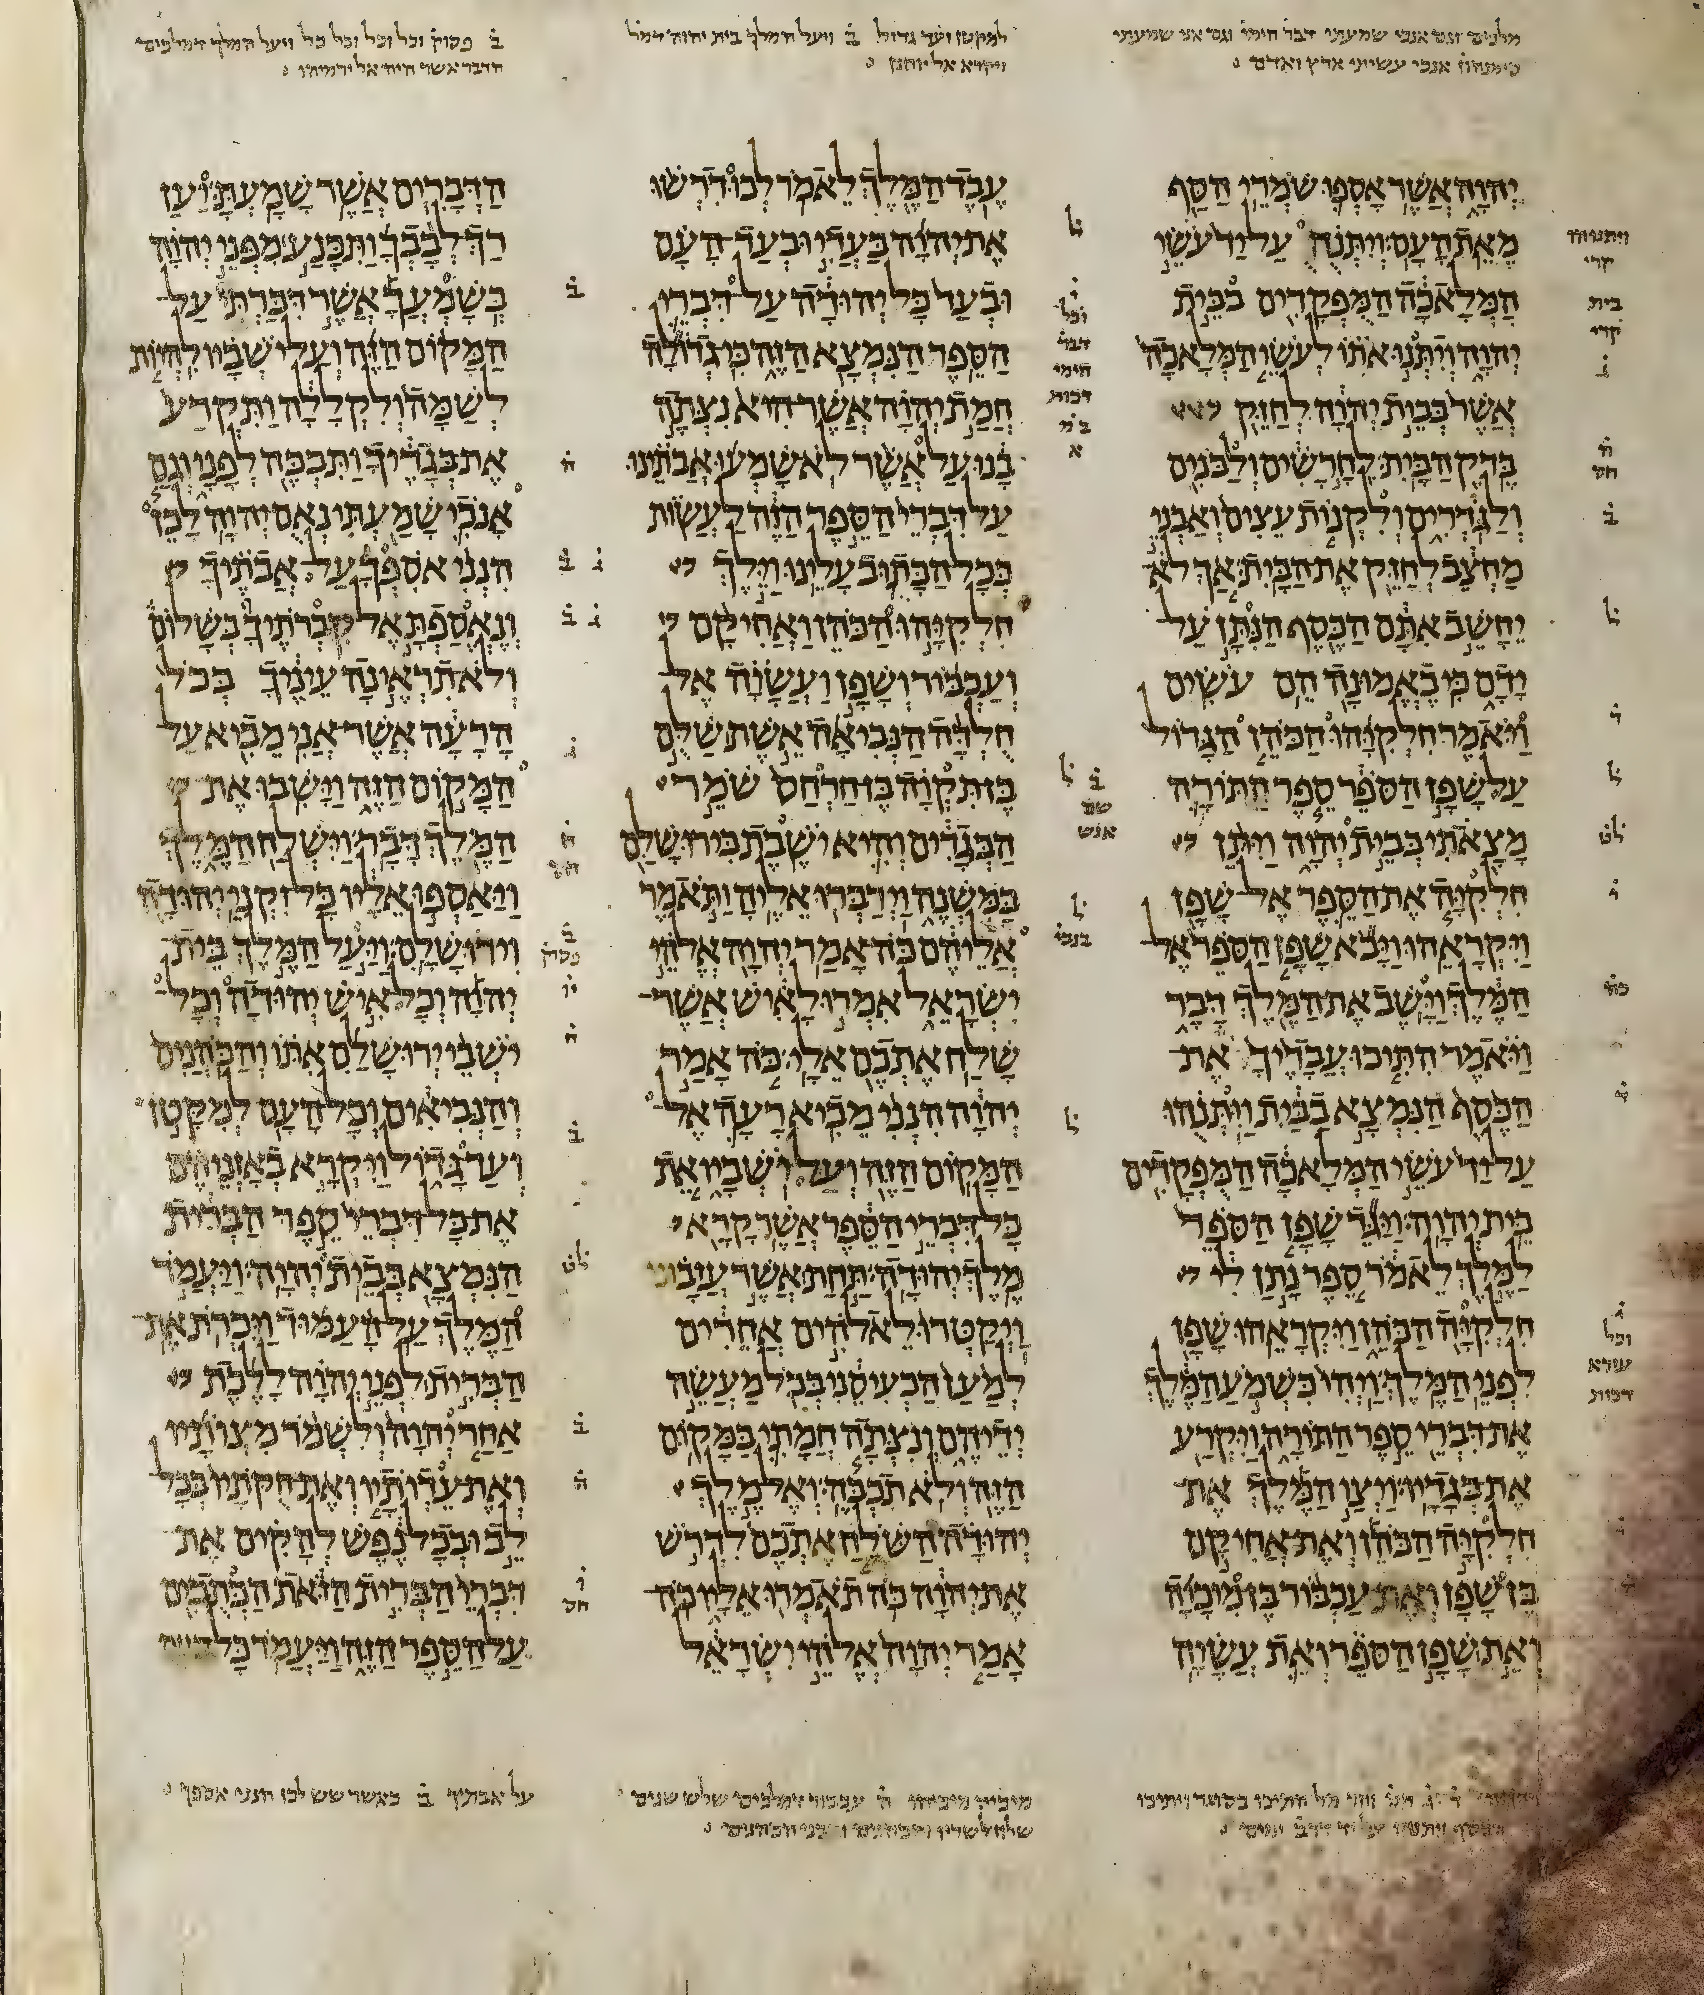 מלכים וגם אנכי שמעתי דבר הימי וגם אני שמעתי
סימנהון אנכי עשיתי ארץ ואדם
למקטן ועד גדול ב ויעל המלך בית יהוה דמל
ויקרא אל יוחנן
ב פסוק וכל וכל וכל כל ויעל המלך דמלכים
הדבר אשר היה אל ירמיהו
יהוה אשר אספו שמרי הסף
מאת העם ויתנה על יד עשי
המלאכה המפקדים בבית
יהוה ויתנו אתו לעשי המלאכה
אשר בבית יהוה לחזק
בדק הבית לחרשים ולבנים
ולגדרים ולקנות עצים ואבני
מחצב לחזק את הבית אך לא
יחשב אתם הכסף הנתן על
ידם כי באמונה הם עשים
ויאמר חלקיהו הכהן הגדול
על שפן הספר ספר התורה
מצאתי בבית יהוה ויתן
חלקיה את הספר אל שפן
ויקראהו ויבא שפן הספר אל
המלך וישב את המלך דבר
ויאמר התיכו עבדיך את
הכסף הנמצא בבית ויתנהו
על יד עשי המלאכה המפקדים
בית יהוה ויגד שפן הספר
למלך לאמר ספר נתן לי
חלקיה הכהן ויקראהו שפן
לפני המלך ויהי כשמע המלך
את דברי ספר התורה ויקרע
את בגדיו ויצו המלך את
חלקיה הכהן ואת אחיקם
בן שפן ואת עכבור בן מיכיה
ואת שפן הספר ואת עשיה
עבד המלך לאמר לכו דרשו
את יהוה בעדי ובעד העם
ובעד כל יהודה על דברי
הספר הנמצא הזה כי גדולה
חמת יהוה אשר היא נצתה
בנו על אשר לא שמעו אבתינו
על דברי הספר הזה לעשות
ככל הכתוב עלינו וילך
חלקיהו הכהן ואחיקם
ועכבור ושפן ועשיה אל
חלדה הנביאה אשת שלם
בן תקוה בן חרחס שמר
הבגדים והיא ישבת בירושלם
במשנה וידברו אליה ותאמר
אליהם כה אמר יהוה אלהי
ישראל אמרו לאיש אשר
שלח אתכם אלי כה אמר
יהוה הנני מביא רעה אל
המקום הזה ועל ישביו את
כל דברי הספר אשר קרא
מלך יהודה תחת אשר עזבוני
ויקטרו לאלהים אחרים
למען הכעיסני בכל מעשה
ידיהם ונצתה חמתי במקום
הזה ולא תכבה ואל מלך
יהודה השלח אתכם לדרש
את יהוה כה תאמרו אליו כה
אמר יהוה אלהי ישראל
הדברים אשר שמעת יען
רך לבבך ותכנע מפני יהוה
בשמעך אשר דברתי על
המקום הזה ועל ישביו להיות
לשמה ולקללה ותקרע
את בגדיך ותבכה לפני וגם
אנכי שמעתי נאם יהוה לכן
הנני אספך על אבתיך
ונאספת אל קברתיך בשלום
ולא תראינה עיניך בכל
הרעה אשר אני מביא על
המקום הזה וישבו את
המלך דבר וישלח המלך
ויאספו אליו כל זקני יהודה
וירושלם ויעל המלך בית
יהוה וכל איש יהודה וכל
ישבי ירושלם אתו והכהנים
והנביאים וכל העם למקטן
ועד גדול ויקרא באזניהם
את כל דברי ספר הברית
הנמצא בבית יהוה ויעמד
המלך על העמוד ויכרת את
הברית לפני יהוה ללכת
אחר יהוה ולשמר מצותיו
ואת עדותיו ואת חקתיו בכל
לב ובכל נפש להקים את
דברי הברית הזאת הכתבים
על הספר הזה ויעמד כל
על אבתיך ב כאשר שש לכן הנני אספך